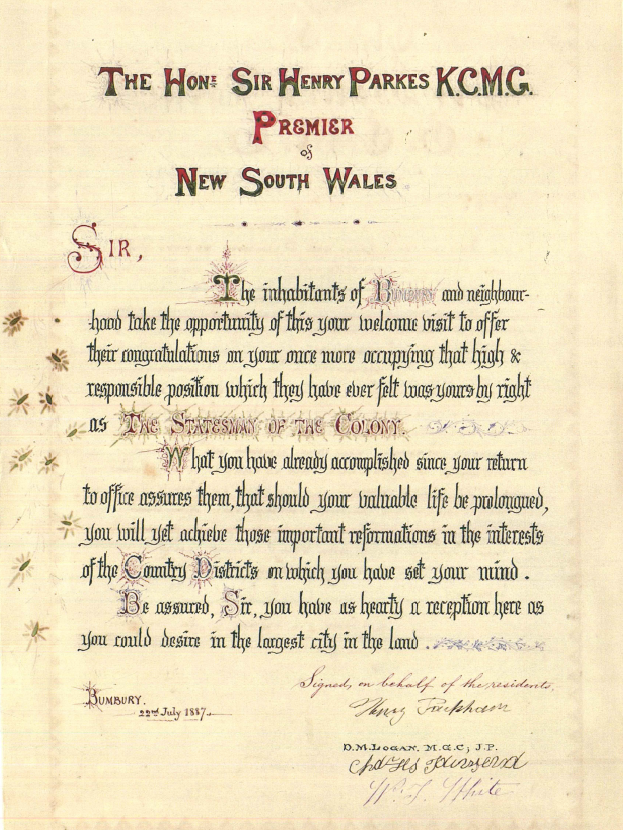 THE HON: SIR HENRY PARKES K.C.M.G.
PREMIER
of
NEW SOUTH WALES
SIR,
The inhabitants of and neighbour-
hood take the opportunity of this your welcome visit to offer
their congratulations on your once more occupying that high &
responsible position which they have ever felt was yours by right
as THE STATESMAN OF THE COLONY.
What you have already accomplished since your return
to office assures them, that should your valuable life be prolongued,
you will yet achieve those important reformations in the interests
of the Country Districts on which you have set your mind.
Be assured, Sir, you have as hearty a reception here as
you could desire in the largest city in the land
Signed, on behalf of the residents,
BUMBURY.
22nd July 1887.
Henry Packham
D.M. LOGAN. M.G.C; J.P.
Townsend
White